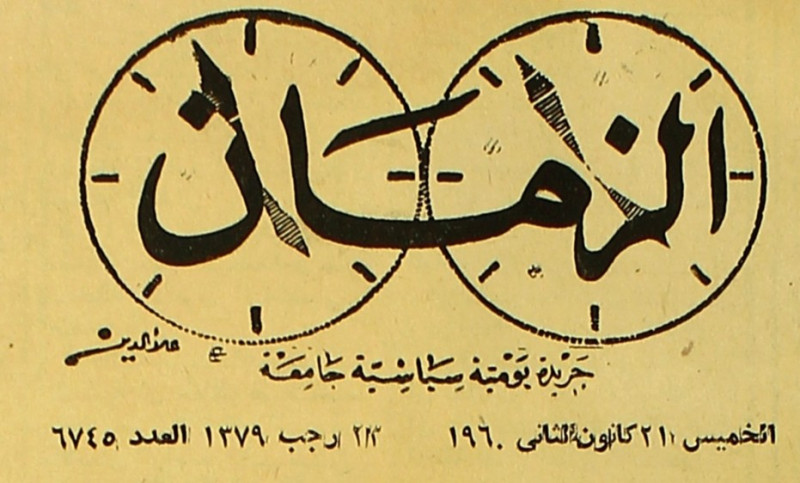 الزمان
علاءالدين
جريدة يومية سياسية جامعة
الخميس ٢١ كانون الثاني ١٩٦٠ ٢٣ رجب ١٣٧٩ العدد ٦٧٤٥